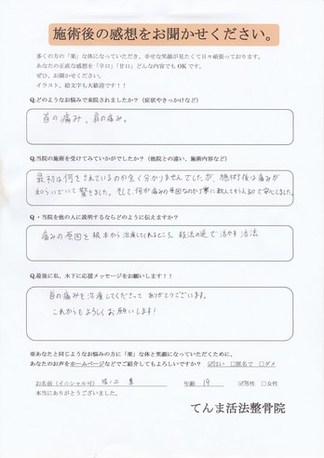 施術後の感想をお聞かせください。
多くの方の「楽」な体になっていただき、幸せな笑顔が見たくて日々頑張っております。
あなたの正直な感想を「辛口」「甘口」どんな内容でもOKです。
ぜひ、お聞かせください。
イラスト、絵文字も大歓迎です！！
Q.どのようなお悩みで来院されましたか？（症状やきっかけなど）
首の痛み、肩の痛み。
Q.当院の施術を受けてみていかがでしたか？（他院との違い、施術内容など）
最初は何をされているのか全く分かりませんでしたが、施術後は痛みが
和らいでいて驚きました。そして、何が痛みの原因なのか丁寧に教えてもらえるので安心しました。
Q・当院を他の人に説明するならどのように伝えますか？
痛みの原因を根本から治療してくれるところ。殺法の逆で活かす活法
Q.最後に私、木下に応援メッセージをお願いします！！
首の痛みを治療してくださって ありがとうございます。
これからもよろしくお願いします！
※あなたと同じようなお悩みの方に「楽」な体と笑顔になっていただくために、
あなたのお声をホームページなどでご紹介してもよろしいですか？ ☑はい □匿名で □ダメ
お名前（イニシャル可） 年齢 19 ☑男性 □女性
本当にありがとうございました。
てんま活法整骨院